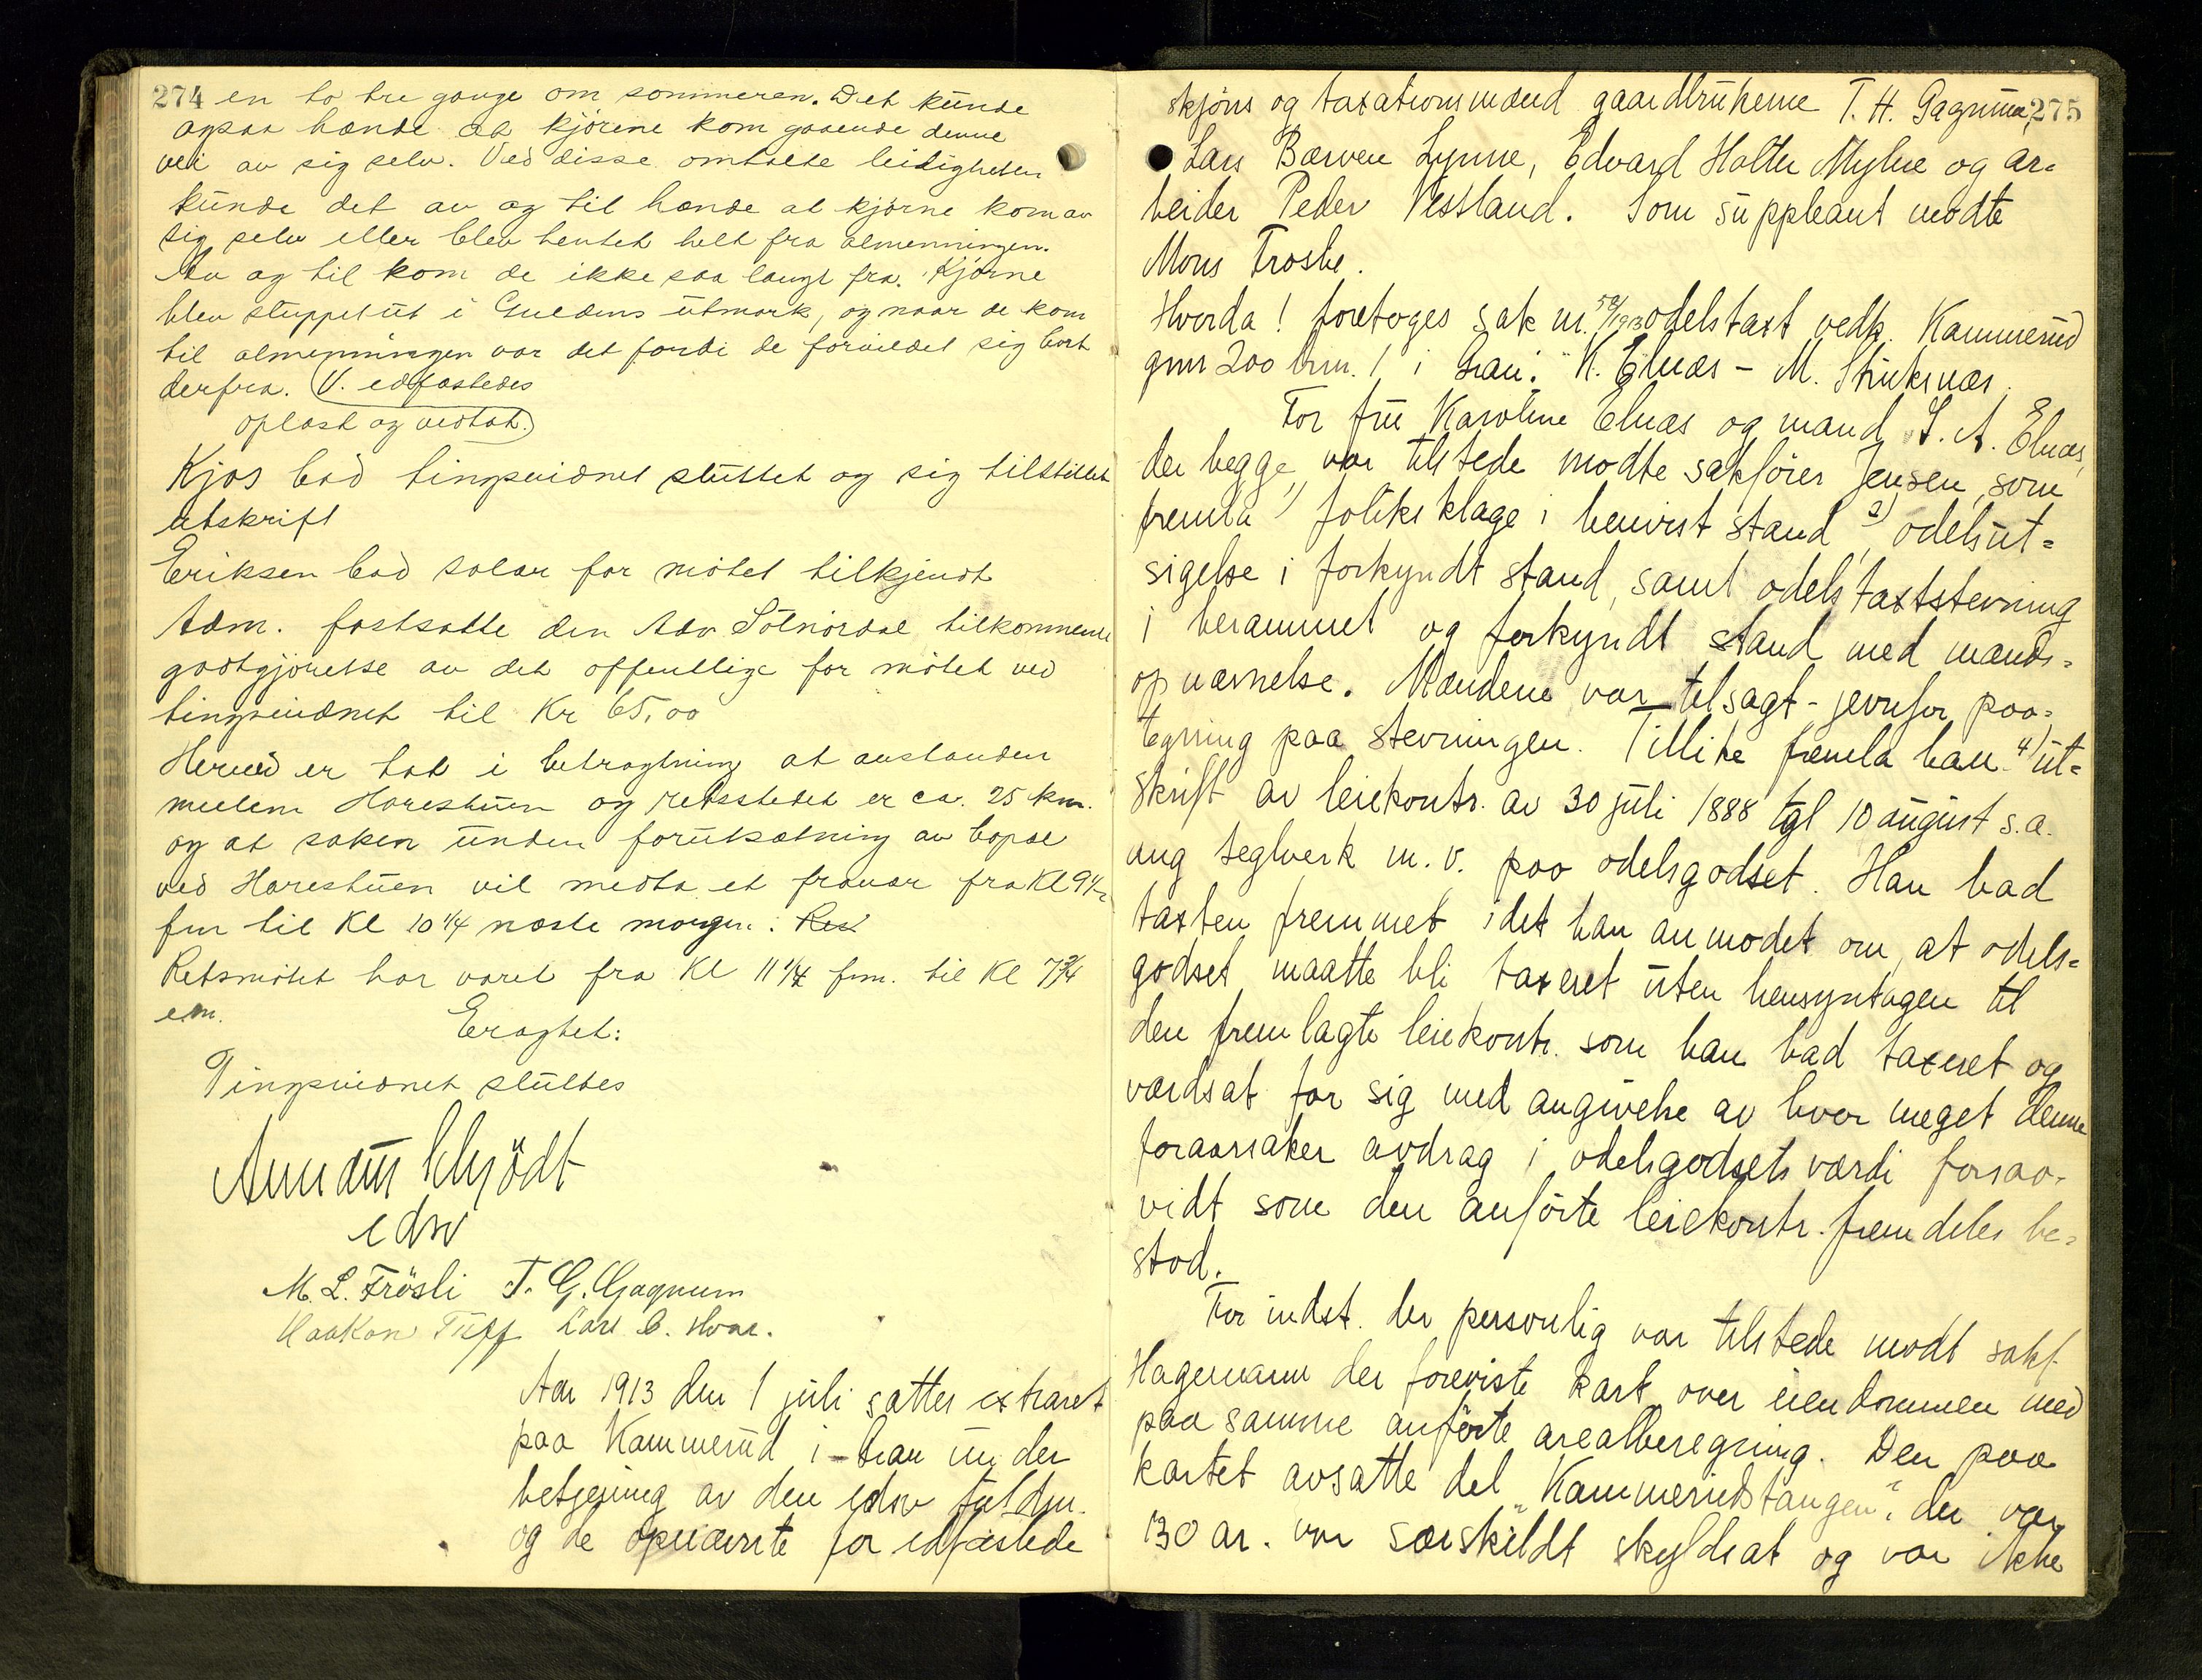 274 en to tre gange om sommeren. Det kunde
ogsaa hænde at kjörene kom gaaende denne
vei av sig selv. Ved disse omtalte leiligheter
kunde det av og til hænde at kjörne kom av
sig selv eller blev hentet helt fra almenningen.
Av og til kom de ikke saa langt fra. Kjörne
blev sluppet ut i Guldens utmark, og naar de kom
til almenningen var det fordi de forvildet sig bort
derfra. V. edfæstedes
oplæst og vedtat.
Kjos bad tingsvidnet sluttet og sig tilstillet
utskrift
Eriksen bad salær for mötet tilkjendt
Adm. fastsatte den Adv Sölnördal tilkommende
godtgjörelse av det offentlige for mötet ved
tingsvidnet til Kr 65,00
Herved er tat i betragtning at avstanden
mellem Harestuen og retsstedet er ca. 25 km.
og at saken under forutsætning av bopæl
ved Harestuen vil medta et fravær fra Kl 9 1/2
fm til Kl 10 1/4 næste morgen.
Retsmötet har varet fra Kl 11 1/4 fm. til Kl 7 3/4
em.
Eragtet:
Tingsvidnet sluttes
Schjödt
edsv
M. L. Frösli T. G. Gagnum
Haakon Lars
Aar 1913 den 1 juli sattes extraret
paa Kammerud i Gran under
betjening av den edsv fuldm.
og de opnævnte for edfæstede
skjöns og taxationsmænd gaardbrukerne T. H. Gagnum, 275
Lars Lynne, Edvard Holter Mylne og ar=
beider Peder Vestland. Som suppleant mödte
Mons Froslie.
Hvorda! foretoges sak nr. 58/1913 odelstaxt vedk. Kammerud
gnr 200 brn. 1 i Gran: K. Elnæs - M. Struksnæs.
For fru Karoline Elnæs og mand S. A. Elnæs,
der begge var tilstede mödte sakförer Jensen, som
fremla 1) forliksklage i henvist stand 2) odelsut=
sigelse i forkyndt stand, samt odelstaxtstevning
i berammet og forkyndt stand med mænds=
opnævnelse. Mændene var tilsagt - jevnfør paa=
tegning paa stevningen. Tillike fremla han 4) ut=
skrift av leiekontr. av 30 juli 1888 tgl 10 august s.a.
ang teglverk m. v. paa odelsgodset. Han bad
taxten fremmet idet han anmodet om, at odels=
godset maatte bli taxeret uten hensyntagen til
den fremlagte leiekontr. som han bad taxeret og
værdsat for sig med angivelse av hvor meget denne
foraarsaker avdrag i odelsgodsets værdi forsaa=
vidt som den anförte leiekontr. fremdeles be=
stod.
For indst. der personlig var tilstede mödt sakf.
Hagemann der foreviste kart over eiendommen med
paa samme anförte arealberegning. Den paa
kartet avsatte del "Kammerudstangen", der var
130 ar. var særskildt skyldsat og var ikke